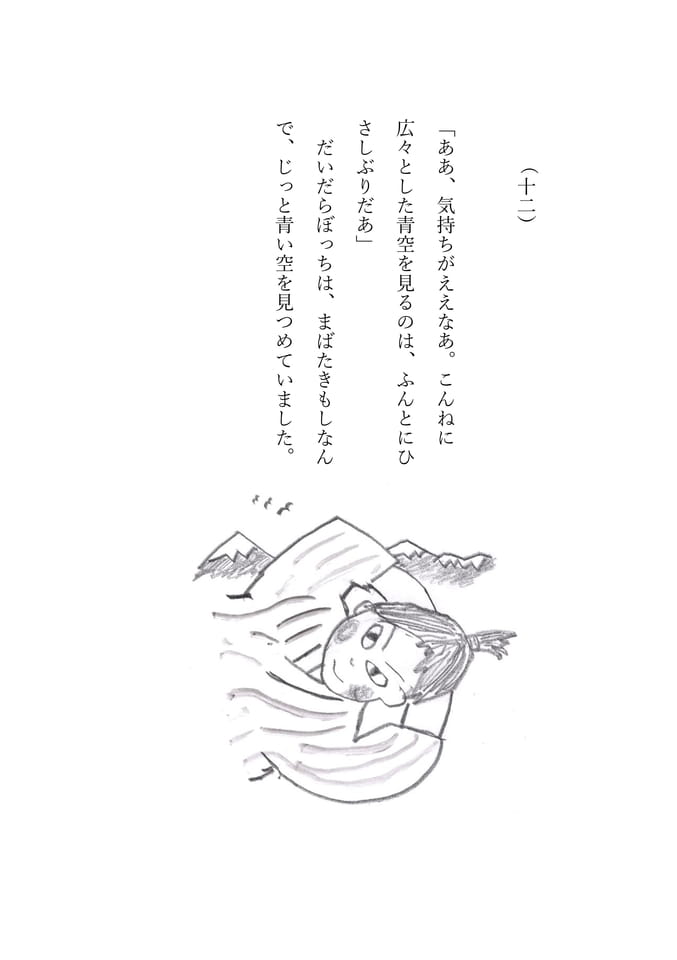 （十二）
「ああ、気持ちがええなあ。こんねに
広々とした青空を見るのは、ふんとにひ
さしぶりだあ」
　だいだらぼっちは、まばたきもしなん
で、じっと青い空を見つめていました。